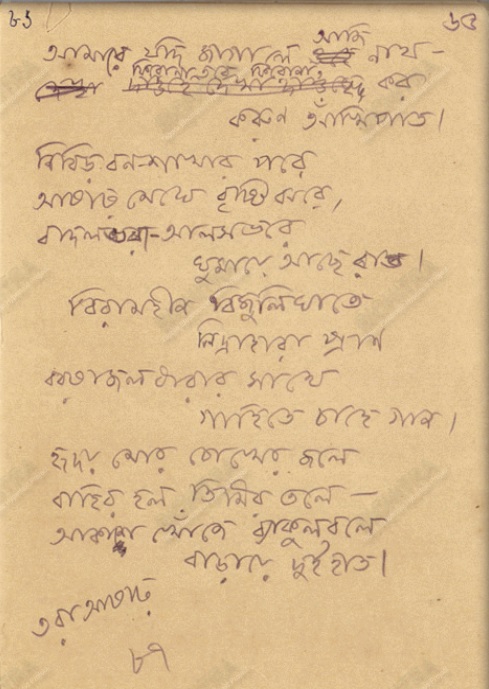 ৮১ ৬৫
আমারে যদি জাগালে আজি নাথ –
ফিরোনা তবে ফিরোনা, কর
করুণ আঁখিপাত।
নিবিড় বন-শাখার পরে
আষাঢ় মেঘে বৃষ্টি ঝরে,
বাদলভরা-আলসভরে
ঘুমায়ে আছে রাত।
বিরামহীন বিজুলিঘাতে
নিদ্রাহারা প্রাণ
বরষাজলধারার সাথে
গাহিতে চাহে গান।
হৃদয় মোর চোখের জলে
বাহির হল তিমির তলে –
আকাশ খোঁজে ব্যাকুল বলে
বাড়ায়ে দুইহাত।
৩রা আষাঢ়
৮৭